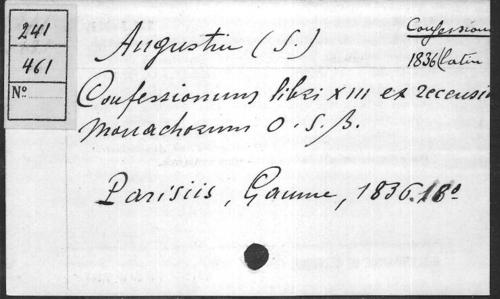 241
461
Nº
Augustin (S.)
Confessions
1836 (latin
Confessionum libri XIII ex recensi
Monachorum O. S. B.
Parisiis, Gaume, 1836. 18º